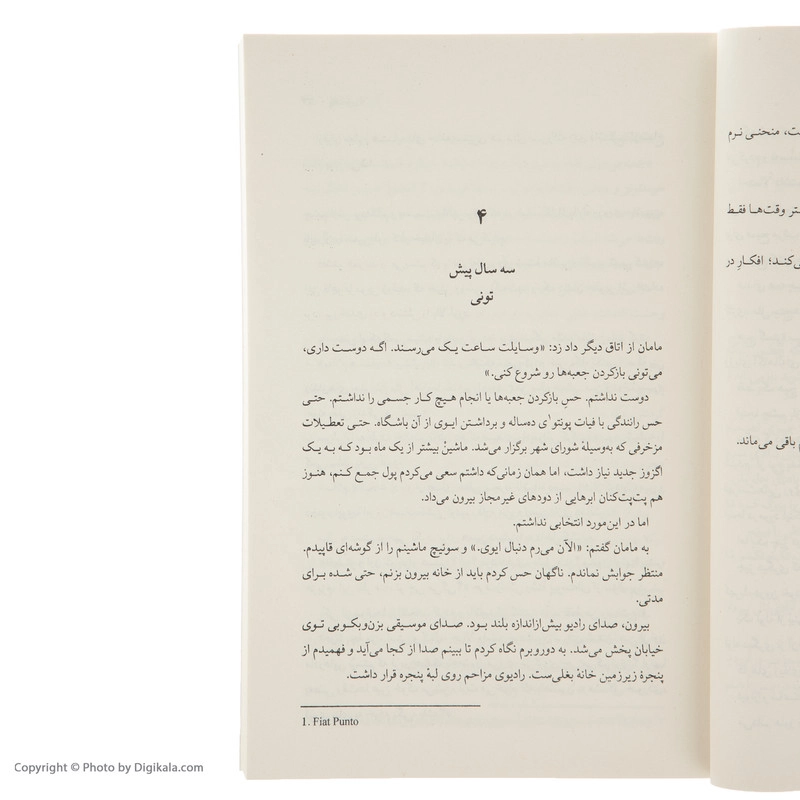 ۴
سه سال پیش
تونی
مامان از اتاق دیگر داد زد: «وسایلت ساعت یک می‌رسند. اگه دوست داری،
می‌تونی بازکردن جعبه‌ها رو شروع کنی.»
دوست نداشتم. حسِ بازکردن جعبه‌ها یا انجام هیچ کار جسمی را نداشتم. حتی
حس رانندگی با فیات پونتو۱ی ده‌ساله و برداشتن ایوی از آن باشگاه. حتی تعطیلات
مزخرفی که به‌وسیلهٔ شورای شهر برگزار می‌شد. ماشینْ بیشتر از یک ماه بود که به یک
اگزوز جدید نیاز داشت، اما همان زمانی‌که داشتم سعی می‌کردم پول جمع کنم، هنوز
هم پت‌پت‌کنان ابرهایی از دودهای غیرمجاز بیرون می‌داد.
اما در این‌مورد انتخابی نداشتم.
به مامان گفتم: «الآن می‌رم دنبال ایوی.» و سوئیچ ماشینم را از گوشه‌ای قاپیدم.
منتظر جوابش نماندم. ناگهان حس کردم باید از خانه بیرون بزنم، حتی شده برای
مدتی.
بیرون، صدای رادیو بیش‌ازاندازه بلند بود. صدای موسیقی بزن‌وبکوبی توی
خیابان پخش می‌شد. به دوروبرم نگاه کردم تا ببینم صدا از کجا می‌آید و فهمیدم از
پنجرهٔ زیرزمین خانهٔ بغلی‌ست. رادیوی مزاحم روی لبهٔ پنجره قرار داشت.
1. Fiat Punto
منحنی نرم
وقت‌ها فقط
افکارِ در
باقی می‌ماند.
Copyright © Photo by Digikala.com